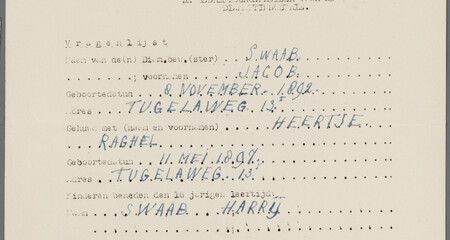 Vragenlijst
Naam van de(n) Dien.bew.(ster) SWAAB
; voornamen JACOB
Geboortedatum 8 NOVEMBER. 1892
Adres TUGELAWEG. 13 I
Gehuwd met (naam en voornamen) HEERTJE.
RAGHEL
Geboortedatum 11. MEI 1897.
Adres TUGELAWEG. 13 I
Kinderen beneden den 16 jarigen leeftijd:
Naam SWAAB HARRY